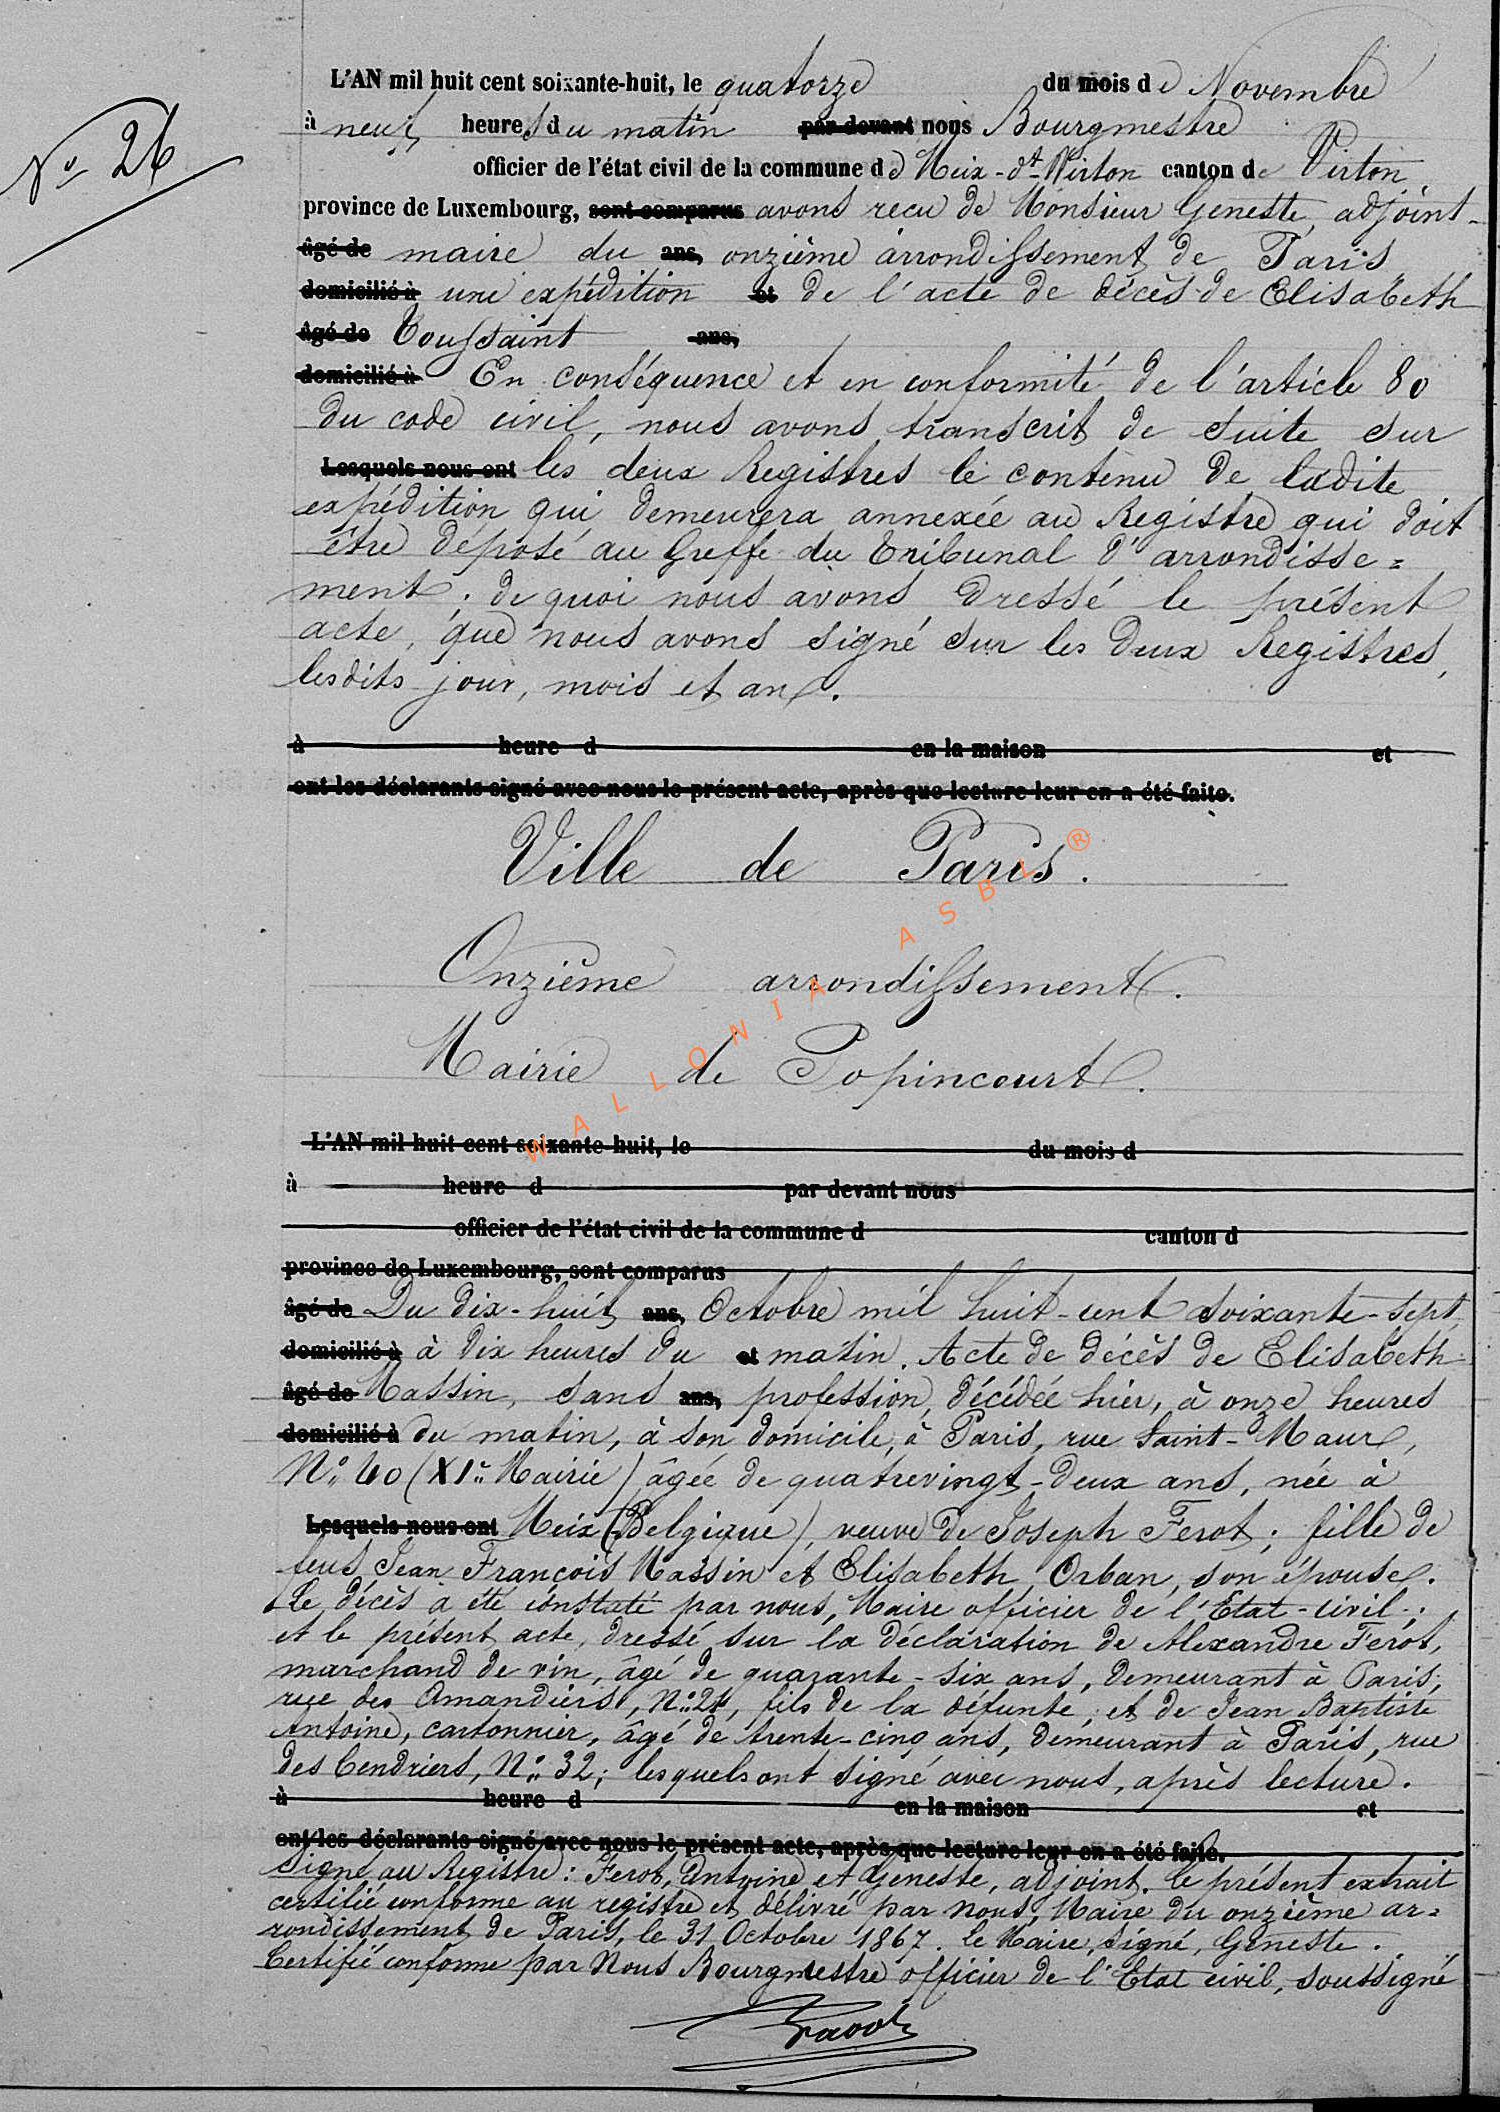 L'AN mil huit cent soixante-huit, le quatorze du mois de Novembre
à neuf heures du matin par devant nous Bourgmestre
N° 26
officier de l'état civil de la commune de Meix-dt-Virton canton de Virton
province de Luxembourg, sont comparus avons recu de Monsieur Geneste, adjoint-
âgé de maire du ans, onzième arrondissement de Paris
domicilié à une expédition et de l'acte de décès de Elisabeth
âgé de Toussaint ans,
domicilié à En conséquence et en conformité de l'article 80
du code civil, nous avons transcrit de suite sur
Lesquels nous ont les deux Registres le contenu de ladite
expédition qui demeurera annexée au Registre qui doit
être déposé au Greffe du Tribunal d'arrondisse=
ment; de quoi nous avons dressé le présent
acte, que nous avons signé sur les deux Registres,
lesdits jour, mois et an.
à heure d en la maison et
ont les déclarants signé avec nous le présent acte, après que lecture leur en a été faite.
Ville de Paris.
Onzième arrondissement.
Mairie de Popincourt.
WALLONIA ASBL ®
L'AN mil huit cent soixante-huit, le du mois d
à heure d par devant nous
officier de l'état civil de la commune d canton d
province de Luxembourg, sont comparus
âgé de Du dix-huit ans, Octobre mil huit-cent soixante-sept,
domicilié à à dix heures du et matin. Acte de décès de Elisabeth
âgé de Massin, sans ans, profession, décédée hier, à onze heures
domicilié à du matin, à son domicile, à Paris, rue Saint-Maur,
N° 40 (XIe Mairie) âgée de quatrevingt-deux ans, née à
Lesquels nous ont Meix (Belgique), veuve de Joseph Ferot; fille de
feus Jean François Massin et Elisabeth Orban, son épouse.
Le décès a été constaté par nous, Maire officier de l'Etat-civil;
et le présent acte, dressé sur la déclaration de Alexandre Ferot,
marchand de vin, âgé de quarante-six ans, demeurant à Paris,
rue des Amandiers, N° 24, fils de la défunte, et de Jean Baptiste
Antoine, cartonnier, âgé de trente-cinq ans, demeurant à Paris, rue
des Cendriers, N° 32; lesquels ont signé avec nous, après lecture.
à heure d en la maison et
ont les déclarants signé avec nous le présent acte, après que lecture leur en a été faite.
Signé au Registre: Ferot, Antoine et Geneste, adjoint. Le présent extrait
certifié conforme au registre et délivré par nous, Maire du onzième ar=
rondissement de Paris, le 31 Octobre 1867. le Maire, signé, Geneste.
Certifié conforme par Nous Bourgmestre officier de l'Etat civil, soussigné